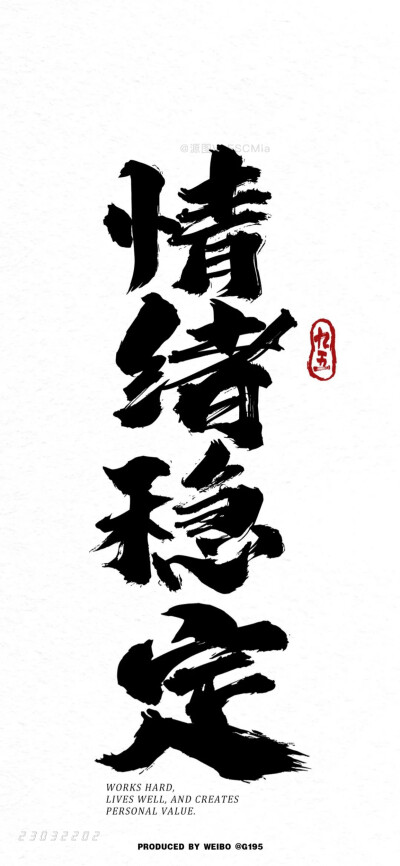 情
绪
稳
定
九
五
WORKS HARD,
LIVES WELL, AND CREATES
PERSONAL VALUE.
23032202
PRODUCED BY WEIBO @G195